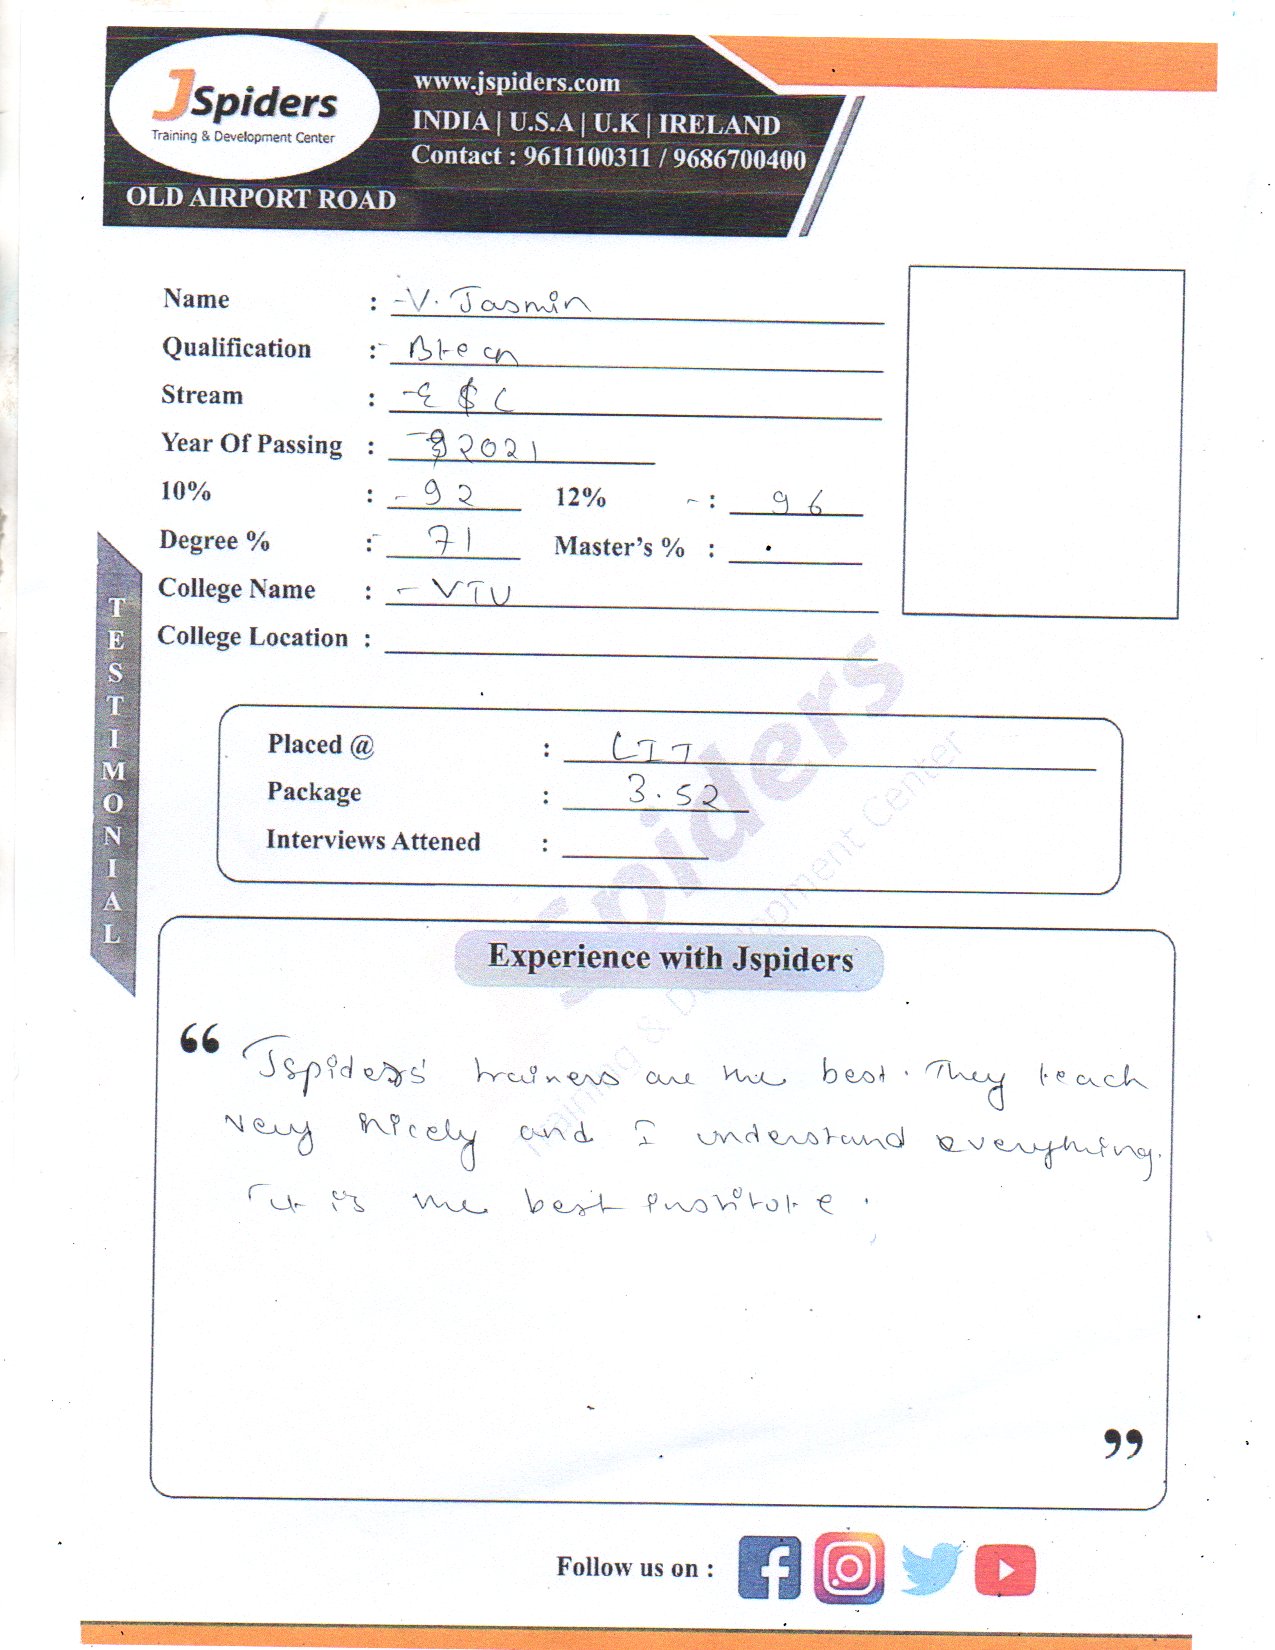 JSpiders
Training & Development Center
OLD AIRPORT ROAD
www.jspiders.com
INDIA | U.S.A | U.K | IRELAND
Contact : 9611100311 / 9686700400
Name : - V. Jasmin
Qualification : - Btech
Stream : - E $ C
Year Of Passing : - 2021
10% : - 92 12% - : 96
Degree % : - 71 Master's % : .
College Name : - VTU
College Location :
TESTIMONIAL
Placed @ : LTI
Package : 3.52
Interviews Attened :
Experience with Jspiders
“ Jspiders' trainers are the best. They teach
very nicely and I understand everything.
It is the best institute.
”
Spiders
Training & Development Center
Follow us on :